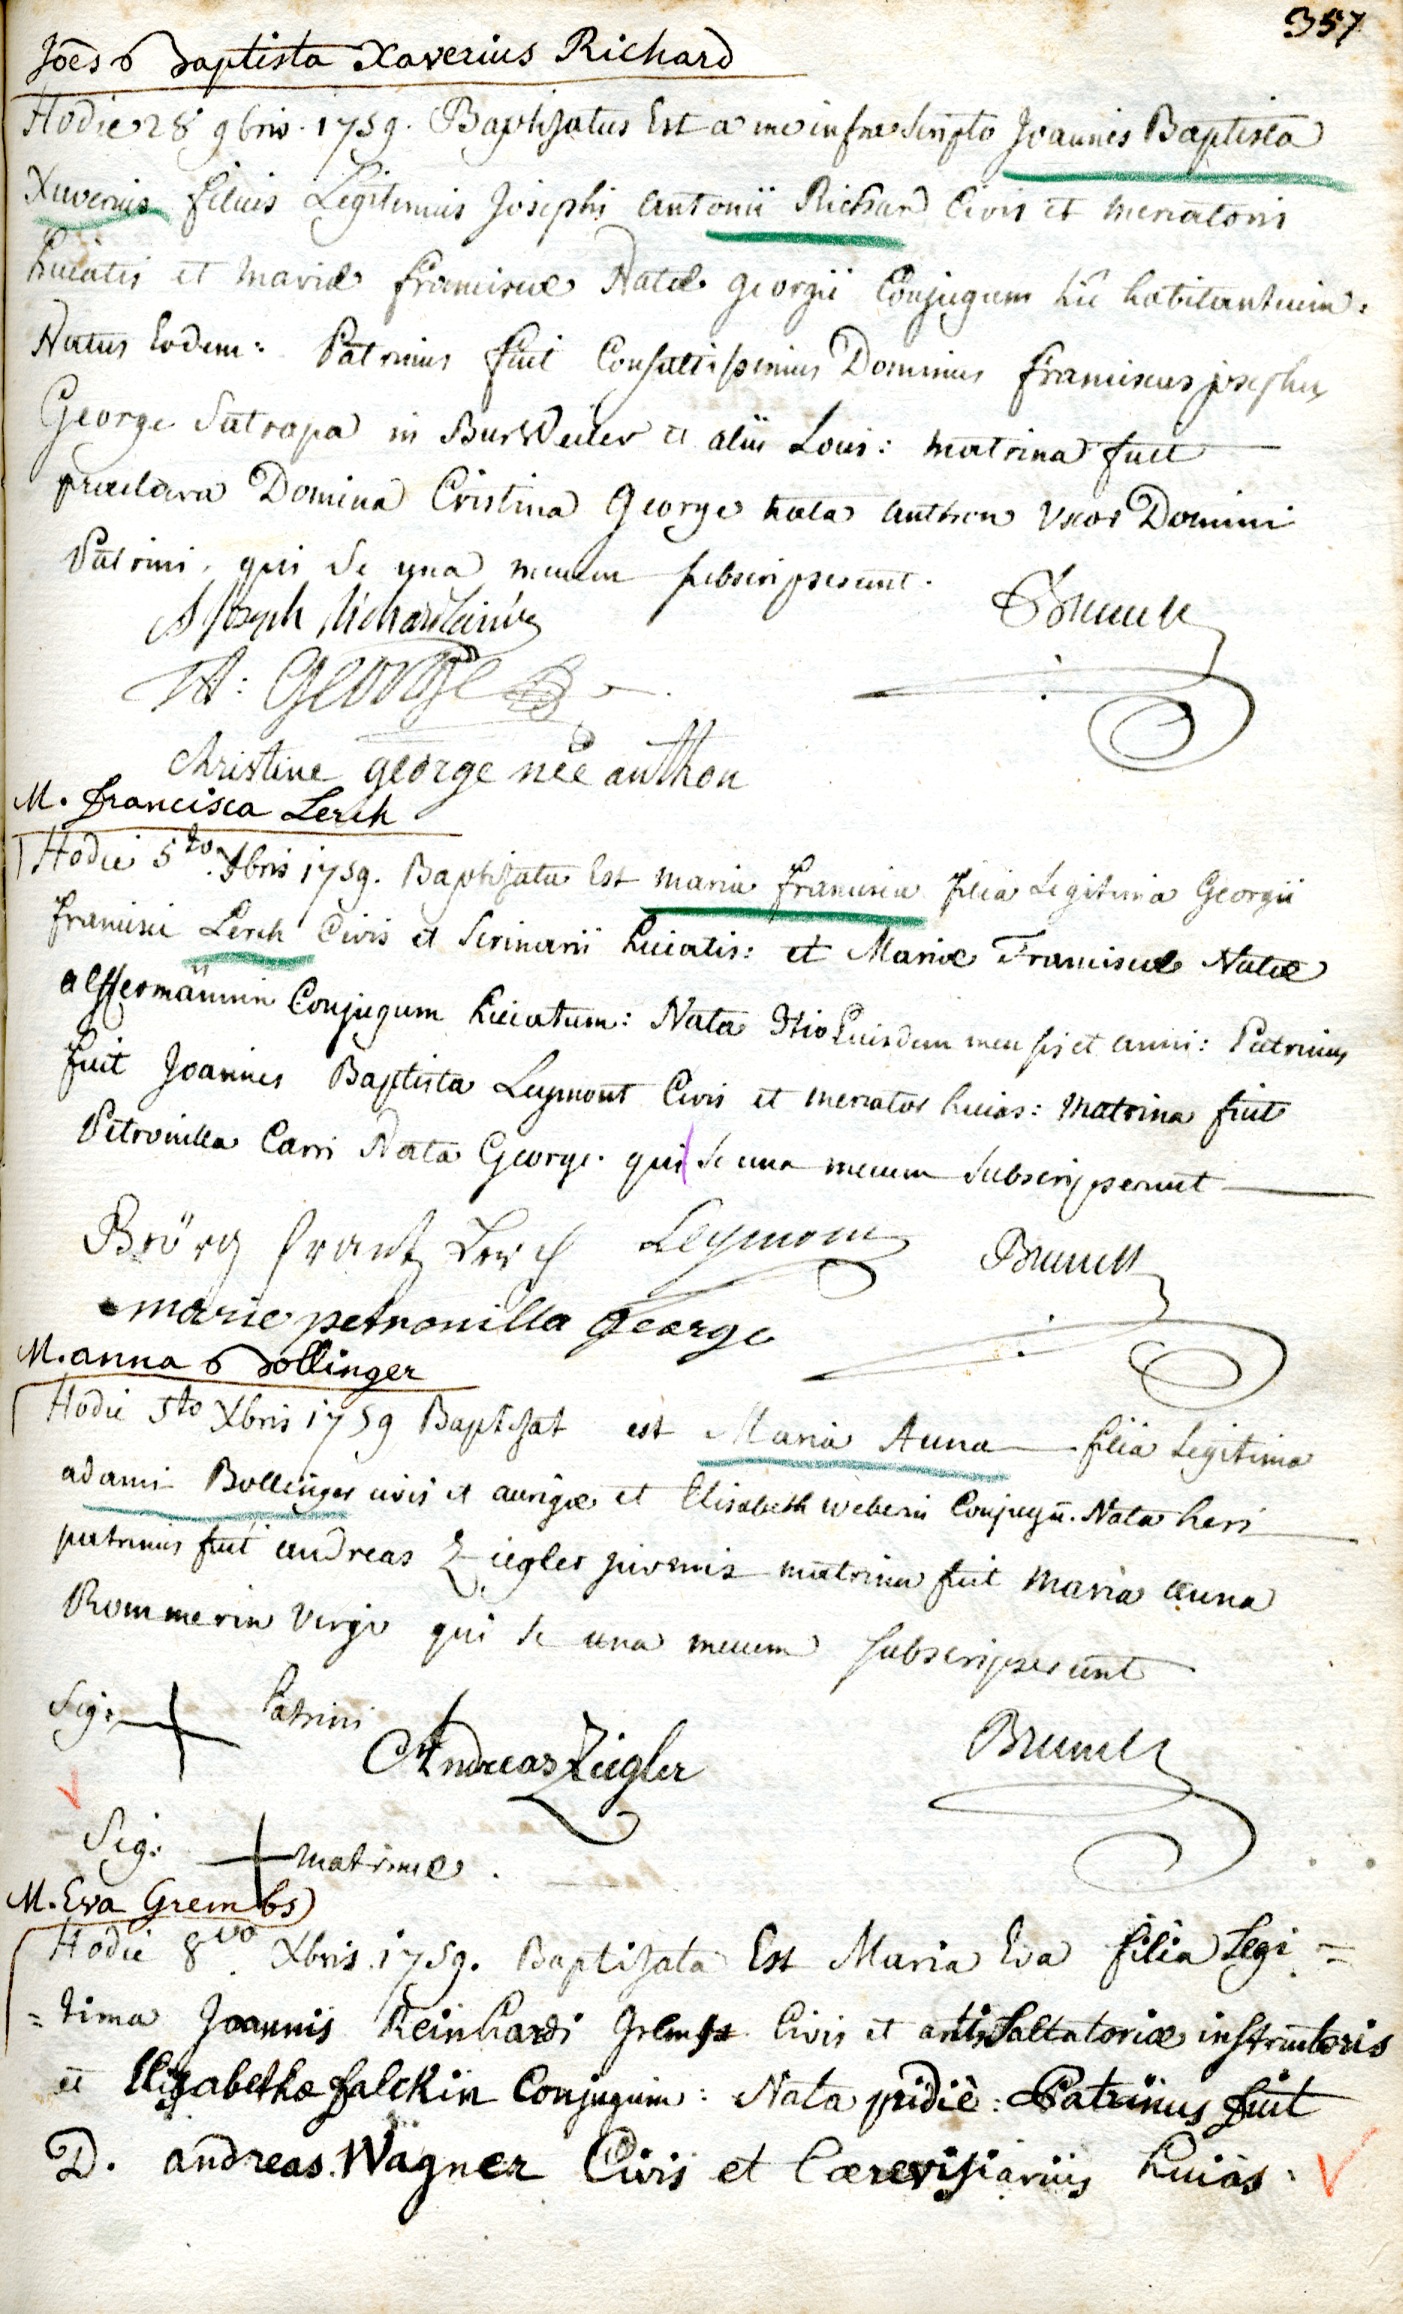 357
Joes Baptista Xaverius Richard
Hodie 28 9bris. 1759. Baptisatus Est a me infra Scripto Joannes Baptista
Xaverius filius Legitimus Josephi Antonii Richard Civis et mercatoris
huiatis et mariæ franciscæ Natæ georgii Conjugum hic habitantium:
Natus Eodem: Patrinus fuit Consultissimus Dominus franciscus josephus
George Satrapa in BurWeiler et aliis Locis: matrina fuit
præclara Domina Cristina George nata anthon Uxor Domini
Patrini, qui Se una mecum subscripserunt.
Joseph Richard
Brunck
George
christine george nèe anthon
M. francisca Lerch
Hodie 5to Xbris 1759. Baptisata Est maria francisca filia Legitima Georgii
francisci Lerch Civis et Scrinarii huiatis: et Mariæ Franciscæ Natæ
Conjugum huiatum: Nata Ejusdem mensis et anni: Patrinus
fuit Joannes Baptista Leymont Civis et mercator huias: matrina fuit
Petronilla Carri Nata George. qui Se una mecum Subscripserunt
Görg frantz Lerch Leymont Brunck
marie petronilla George
M. anna Bollinger
Hodie 5to Xbris 1759 Baptisat est Maria Anna filia Legitima
adami Bollinger civis et aurigæ et Elisabeth weberin Conjugū. Nata heri
patrinus fuit andreas Ziegler juvenis matrina fuit Maria anna
Rommerin virgo qui se una mecum subscripserunt
Sig: Patrini
Andreas Ziegler Brunck
Sig: matrinæ.
M. Eva Grembs
Hodie 8vo Xbris 1759. Baptisata Est Maria Eva filia Legi =
= tima Joannis Reinhardi Grembs Civis et artis Saltatoriæ instructoris
et Elisabethæ falckin Conjugum: Nata pridiè: Patrinus fuit
D. andreas Wagner Civis et Cærevisiarius huias: